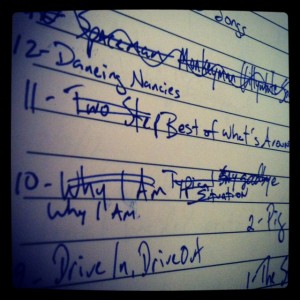 Songs
Spaceman Monkeyman
12- Dancing Nancies
11- Two Step/Best of What's Aroun
10- Why I Am Typical Say goodbye
Situation
Why I Am.
2- Pig
Drive In, Drive Out
1- The S